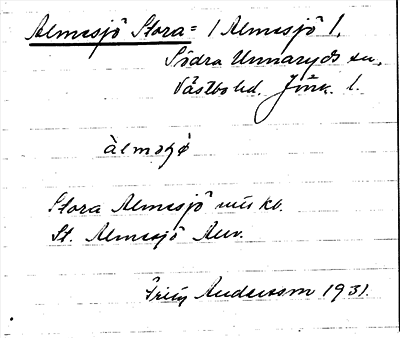 Almesjö Stora = / Almesjö /.
Södra Unnaryds sn.
Västbo hd. Jönk. l.
àlmaʃǿ
Stora Almesjö mis kb.
St. Almesjö Auv.
Fritz Andersson 1931.